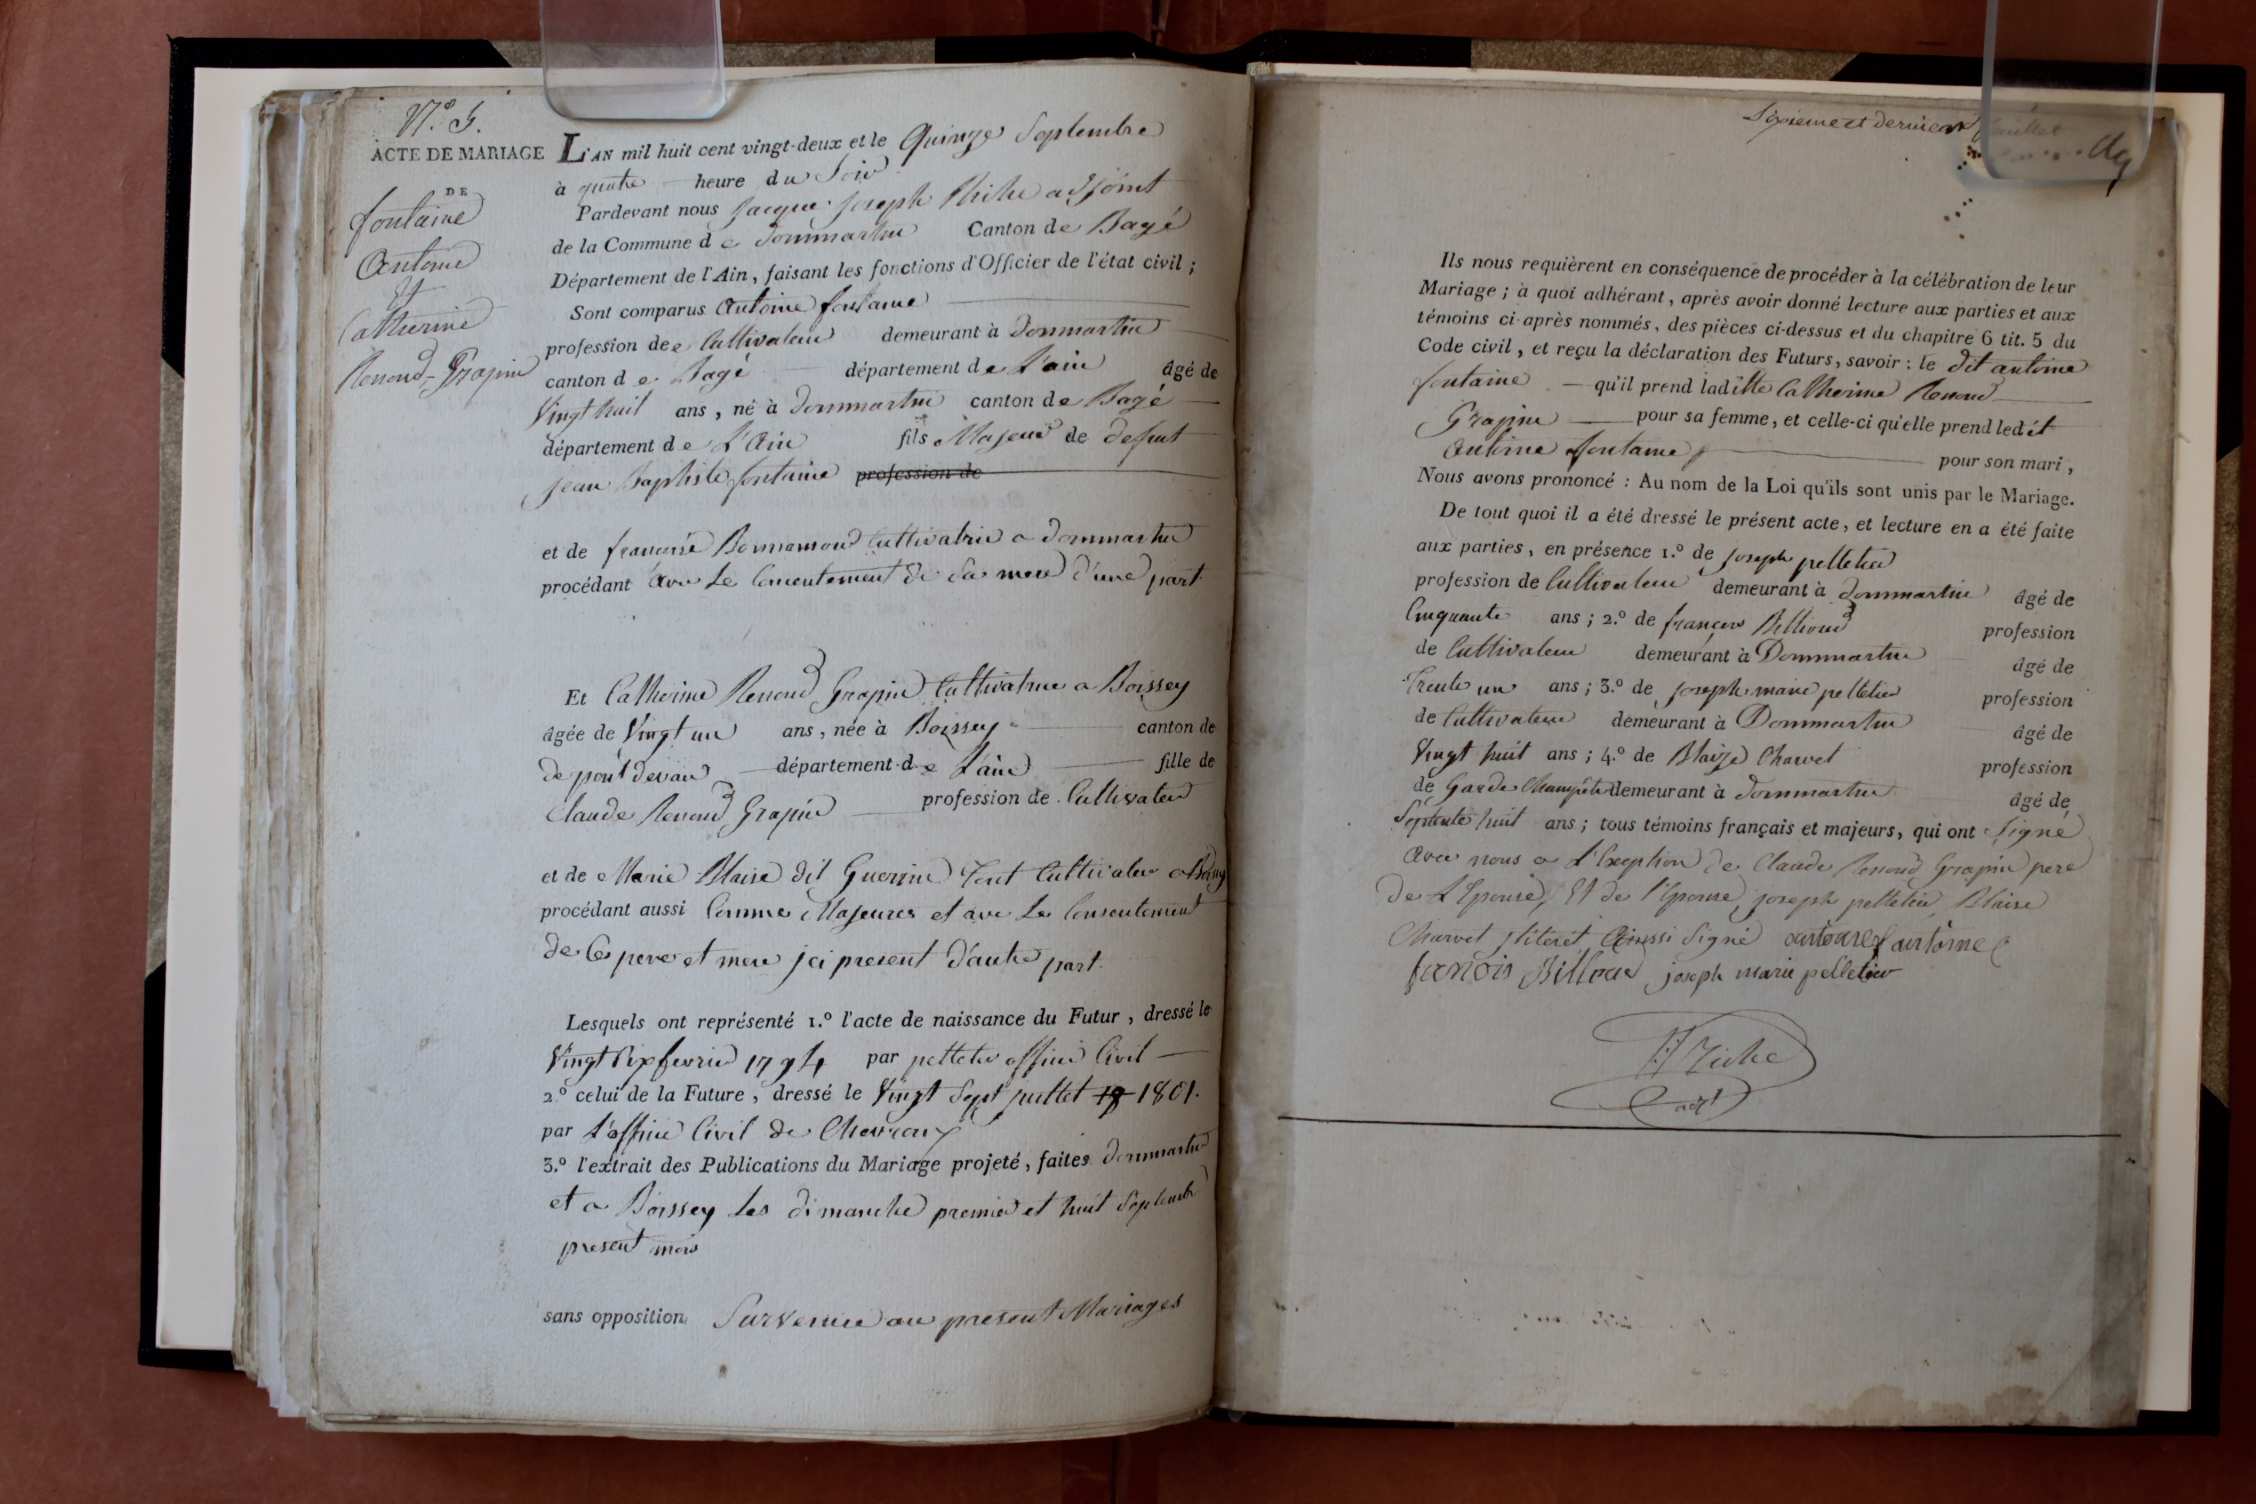 N.° 5.
ACTE DE MARIAGE
DE
fontaine
Antoine
Et
Catherine
Renoud-Grapin
L'AN mil huit cent vingt-deux et le Quinze Septembre
à quatre heure du Soir
Pardevant nous Jacque Joseph Riche adjoint
de la Commune de Dommartin Canton de Bagé
Département de l'Ain, faisant les fonctions d'Officier de l'état civil;
Sont comparus Antoine fontaine
profession de Cultivateur demeurant à Dommartin
canton de Bagé département de L'ain âgé de
Vingt huit ans, né à Dommartin canton de Bagé
département de L'Ain fils Majeur de defunt
Jean Baptiste fontaine profession de
et de francoise Bonnamour Cultivatrice a Dommartin
procédant avec Le Consentement de Sa mere d'une part.
Et Catherine Renoud Grapin Cultivatrice a Boissey
âgée de Vingt un ans, née à Boissey canton de
de pont devaux département de L'ain fille de
Claude Renoud Grapin profession de Cultivateur
et de Marie Blaise dit Guerin Tout Cultivateur a
procédant aussi Comme Majeures et avec Le Consentement
de Ces pere et mere ici present d'autre part.
Lesquels ont représenté 1.° l'acte de naissance du Futur, dressé le
Vingt Six fevrier 1794 par pelletier officier Civil
2.° celui de la Future, dressé le Vingt Sept juillet 18 1801.
par L'officier Civil de Chevroux
3.° l'extrait des Publications du Mariage projeté, faites Dommartin
et a Boissey Les dimanche premier et huit Septembre
present mois
sans opposition Survenue au present Mariages
Sixieme et dernier feuillet
Ils nous requièrent en conséquence de procéder à la célébration de leur
Mariage; à quoi adhérant, après avoir donné lecture aux parties et aux
témoins ci-après nommés, des pièces ci-dessus et du chapitre 6 tit. 5 du
Code civil, et reçu la déclaration des Futurs, savoir: le dit antoine
fontaine qu'il prend laditte Catherine Renoud
Grapin pour sa femme, et celle-ci qu'elle prend ledit
Antoine fontaine pour son mari,
Nous avons prononcé: Au nom de la Loi qu'ils sont unis par le Mariage.
De tout quoi il a été dressé le présent acte, et lecture en a été faite
aux parties, en présence 1.° de joseph pelletier
profession de Cultivateur demeurant à Dommartin âgé de
Cinquante ans; 2.° de francois Billioud profession
de Cultivateur demeurant à Dommartin âgé de
Trente un ans; 3.° de joseph marie pelletier profession
de Cultivateur demeurant à Dommartin âgé de
Vingt huit ans; 4.° de Blaize Charvet profession
de Garde Champêtre demeurant à Dommartin âgé de
Septente huit ans; tous témoins français et majeurs, qui ont Signé
avec nous a L'Exception de Claude Renoud Grapin pere
de L'Epouse, Et de l'Epouse, joseph pelletier, Blaise
Charvet Signé antoine
francois Billoud joseph marie pelletier
Riche
adjt